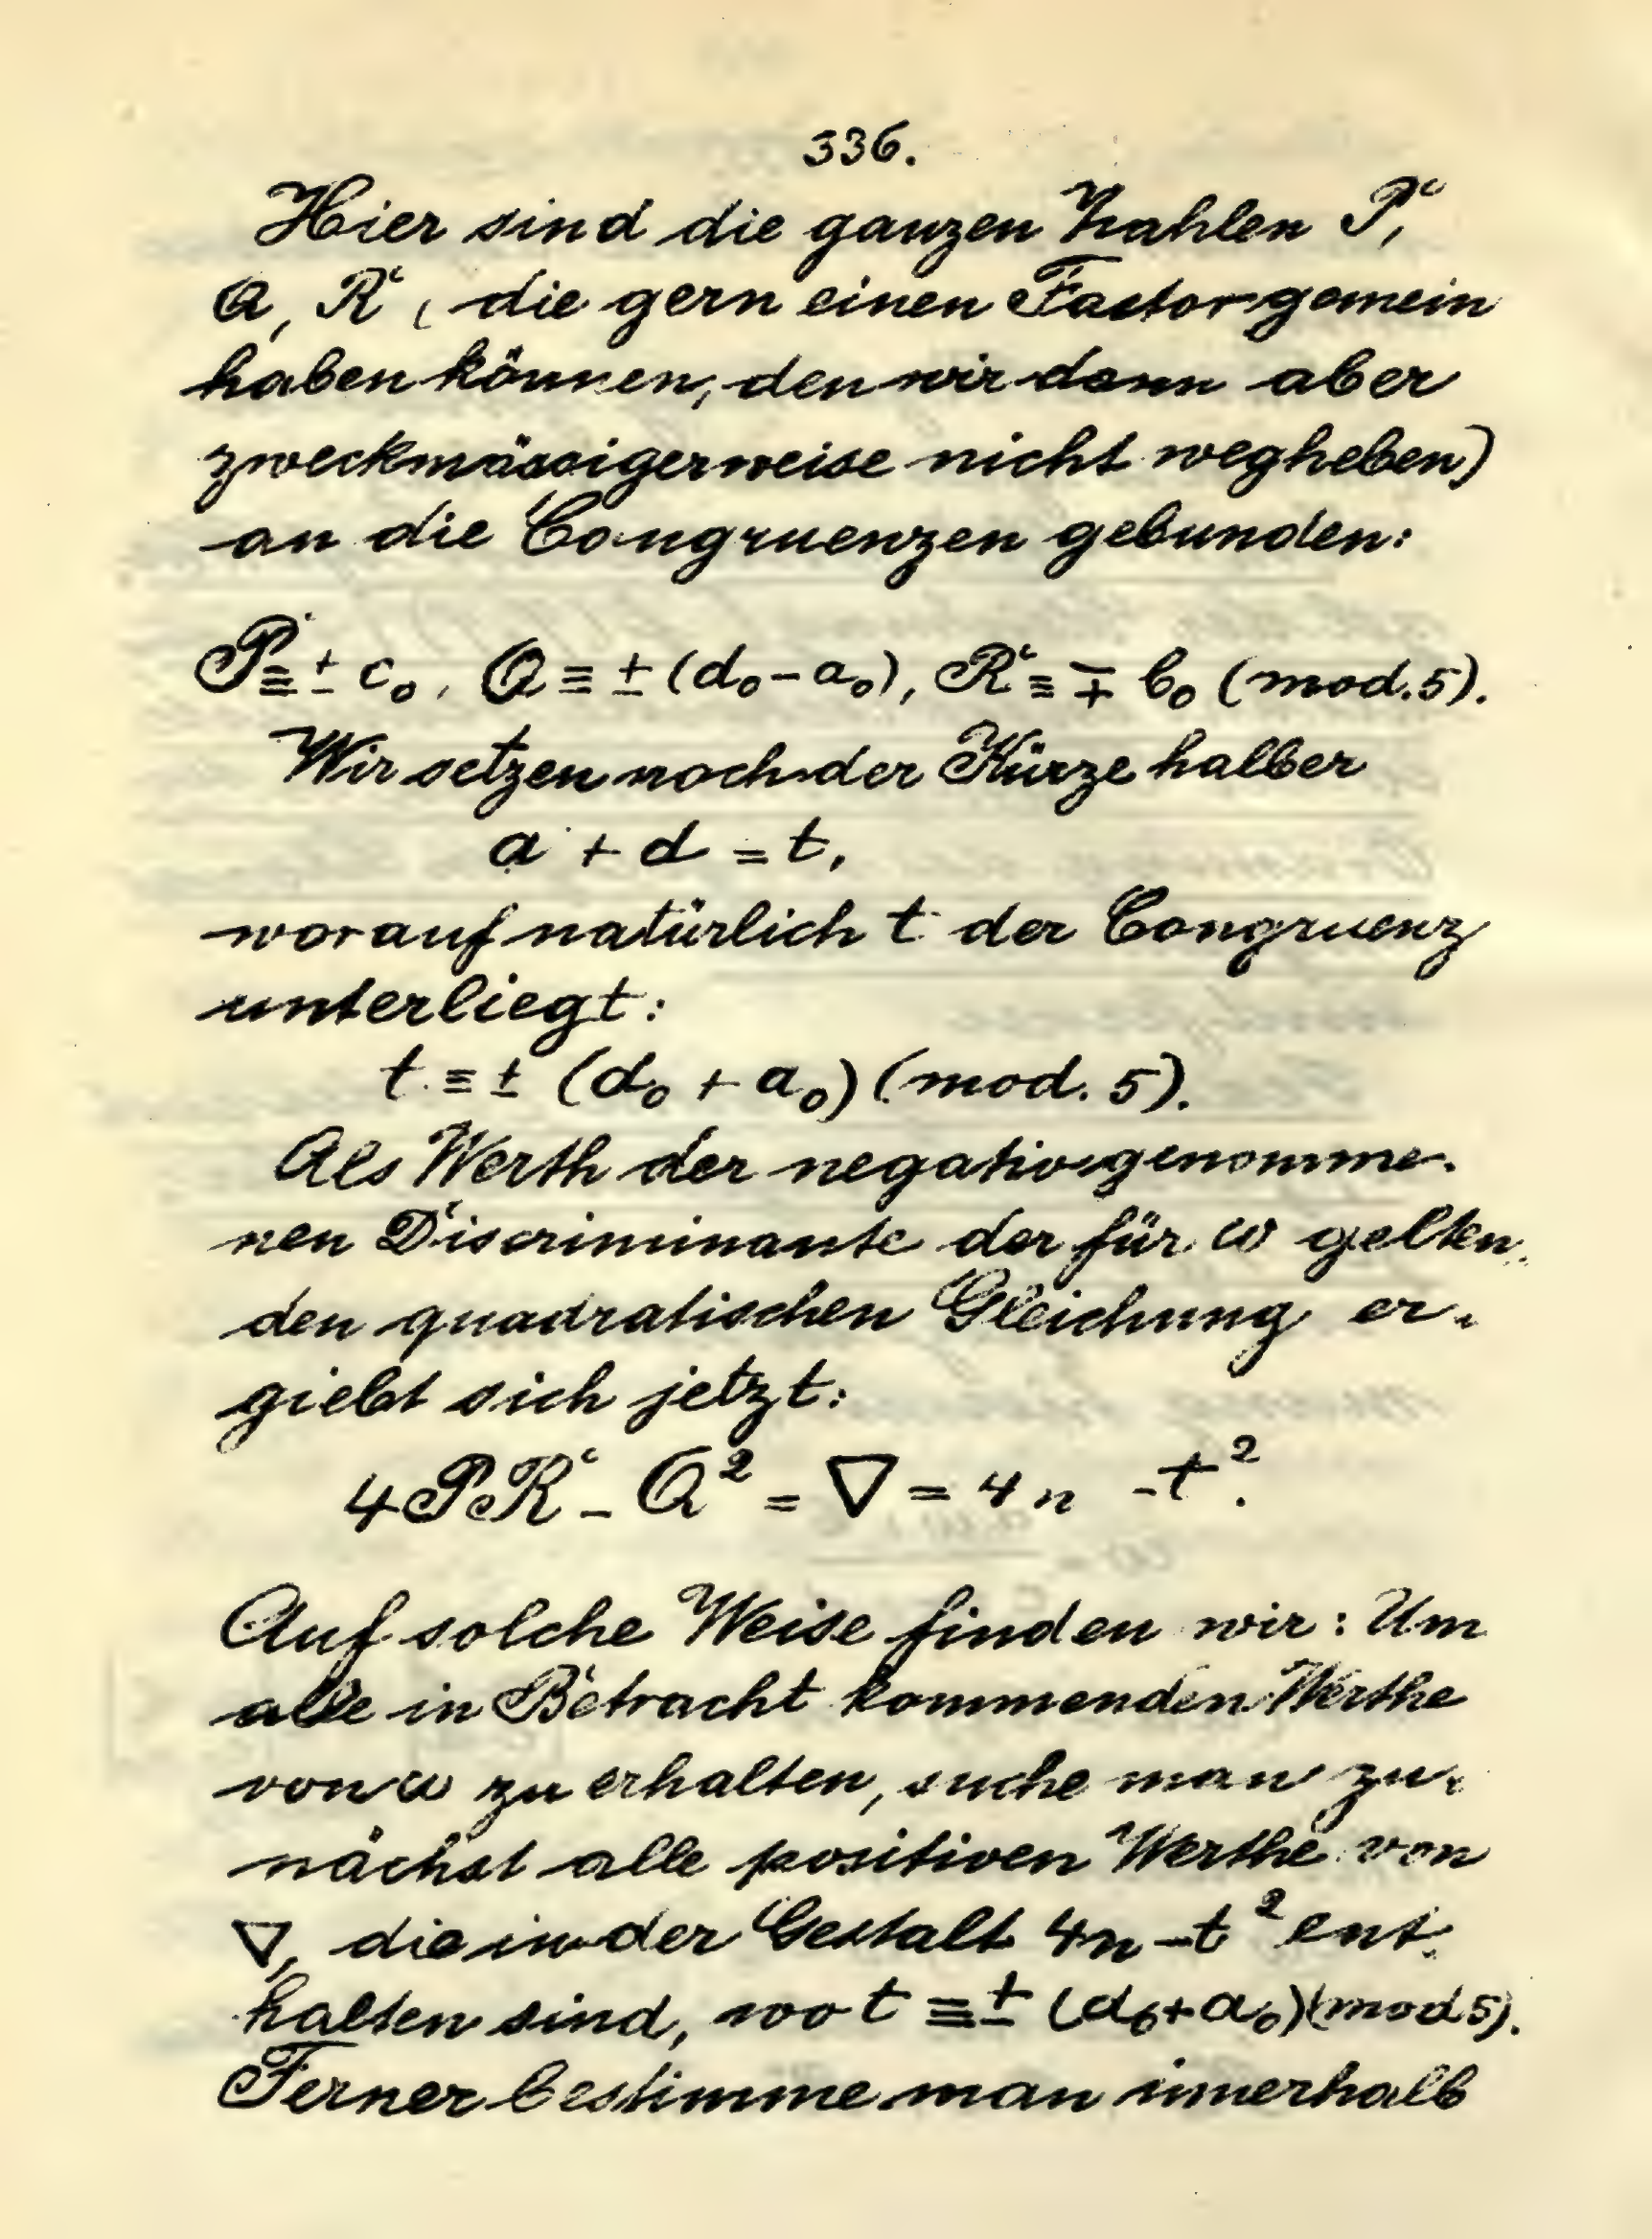 336.
Hier sind die ganzen Zahlen P,
Q, R, (die gern einen Factor gemein
haben können, den wir dann aber
zweckmässigerweise nicht wegheben)
an die Congruenzen gebunden:
P ≡ ± c₀, Q ≡ ± (d₀ - a₀), R ≡ ∓ b₀ (mod. 5).
Wir setzen noch der Kürze halber
a + d = t,
worauf natürlich t der Congruenz
unterliegt:
t ≡ ± (d₀ + a₀) (mod. 5).
Als Werth der negativ genomme-
nen Discriminante der für ω gelten-
den quadratischen Gleichung er-
giebt sich jetzt:
4PR - Q² = ∇ = 4n - t².
Auf solche Weise finden wir: Um
alle in Betracht kommenden Werthe
von ω zu erhalten, suche man zu-
nächst alle positiven Werthe von
∇, die in der Gestalt 4n - t² ent-
halten sind, wo t ≡ ± (d₀ + a₀) (mod 5).
Ferner bestimme man innerhalb